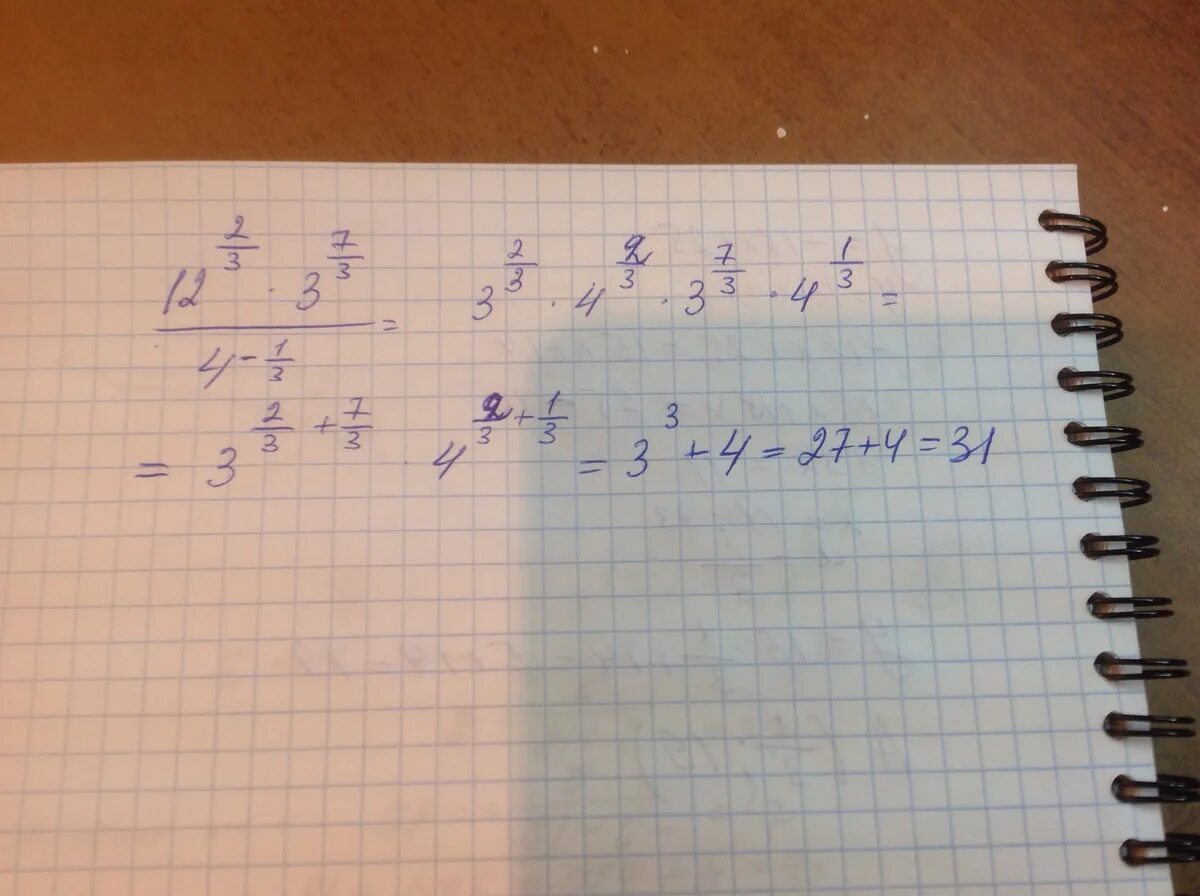 12^(2/3) · 3^(7/3) / 4^(-1/3) = 3^(2/3) · 4^(2/3) · 3^(7/3) · 4^(1/3) =
= 3^(2/3 + 7/3) · 4^(2/3 + 1/3) = 3^3 + 4 = 27 + 4 = 31